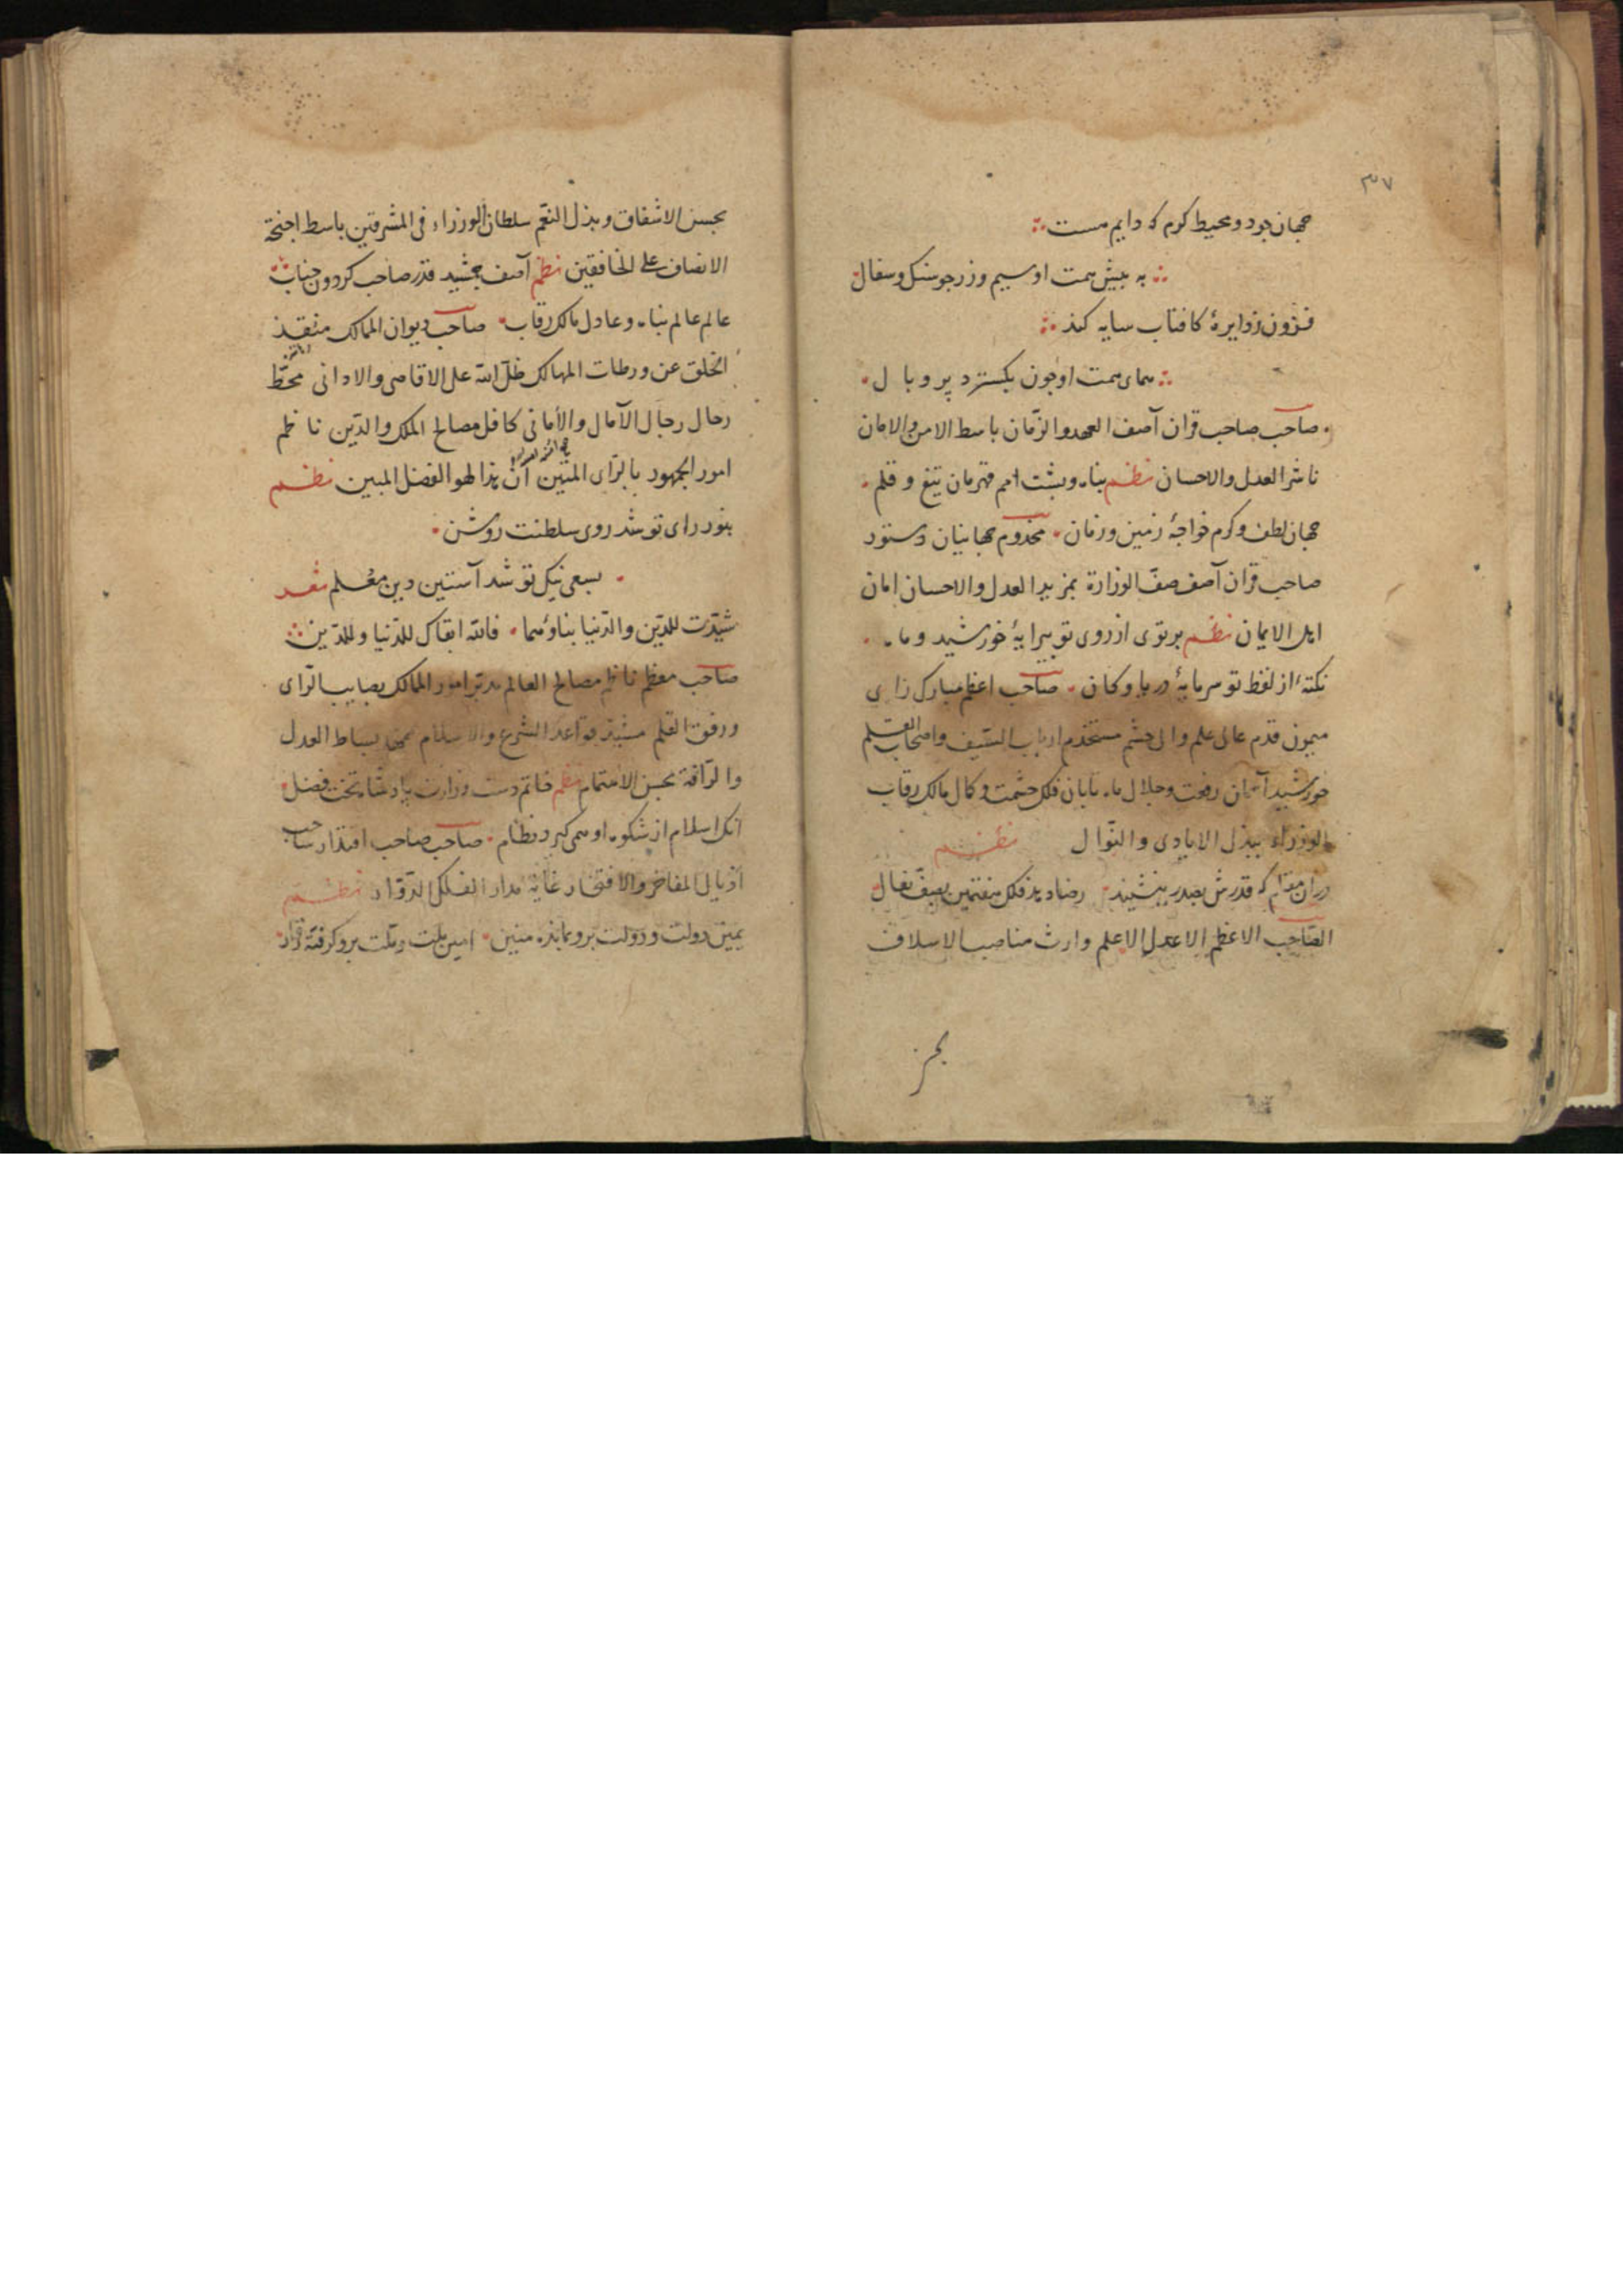 ۳۷
جهان جود و محیط کرم که دایم هست
به پیش همت او سیم و زر جو سنک و سفال
فزون ز دایرهٔ کافتاب سایه کند
همای همت او جون بکسترد پر و بال
صاحب صاحب قران آصف العهد و الزّمان باسط الامن و الامان
ناشر العدل و الاحسان نظم پناه و پشت امم قهرمان تیغ و قلم
جهان لطف و کرم خواجهٔ زمین و زمان مخدوم جهانیان دستور
صاحب قران آصف صفّ الوزارة بمزید العدل و الاحسان امان
اهل الایمان نظم پرتوی از روی تو پیرایهٔ خورشید و ماه
نکتهٔ از لفظ تو سرمایهٔ دریا و کان صاحب اعظم مبارک رای
میمون قدم عالی علم والی حشم مستخدم ارباب السّیف و اصحاب القلم
خورشید آسمان رفعت و جلال ماه تابان فلک حشمت و کمال مالک رقاب
الوزراء ببذل الایادی و النّوال نظم
دران مقام که قدرش بصدر بنشیند رضا دهد فلک هفتمین بصفّ نعال
الصّاحب الاعظم الاعدل الاعلم وارث مناصب الاسلاف
بحسن الاشفاق و بذل النّعم سلطان الوزراء فی المشرقین باسط اجنحة
الانصاف علی الخافقین نظم آصف جمشید قدر صاحب کردون جناب
عالم عالم پناه و عادل مالک رقاب صاحب دیوان الممالک منقذ
الخلق عن ورطات المهالک ظلّ الله علی الاقاصی و الادانی محطّ
رحال رجال الآمال و الأمانی کافل مصالح الملک و الدّین ناظم
امور الجمهور بالرّای المتین انّ هذا لهو الفضل المبین نظم
بنور رای تو شد روی سلطنت روشن
بسعی نیک تو شد آستین دین معلم شعر
شیّدت للدّین و الدّنیا بناؤهما فالله ابقاک للدّنیا و للدّین
صاحب معظم ناظم مصالح العالم مدبّر امور الممالک بصایب الرّای
و رفق القلم مشیّد قواعد الشرع و الاسلام ممهد بساط العدل
و الرّافة بحسن الاهتمام نظم خاتم دست وزارت پادشاه تخت فضل
انک اسلام از شکوه او همی کیرد نظام صاحب صاحب اقتدار ساحب
اذیال المفاخر و الافتخار غایة مدار الفلک الدّوّار نظم
یمین دولت و دولت برو نماینده منین امین ملت و ملّت برو کرفته قرار